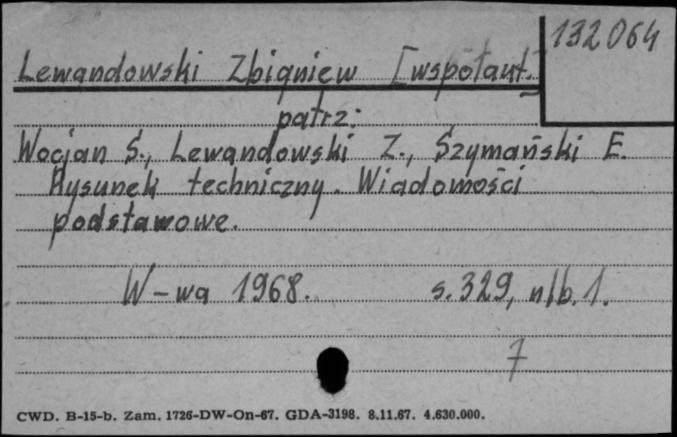 132064
Lewandowski Zbigniew [współaut.]
patrz:
Wocjan S., Lewandowski Z., Szymański E.
Rysunek techniczny. Wiadomości
podstawowe.
W-wa 1968. s. 329, nlb. 1.
7
CWD. B-15-b. Zam. 1726-DW-On-67. GDA-3198. 8.11.67. 4.630.000.